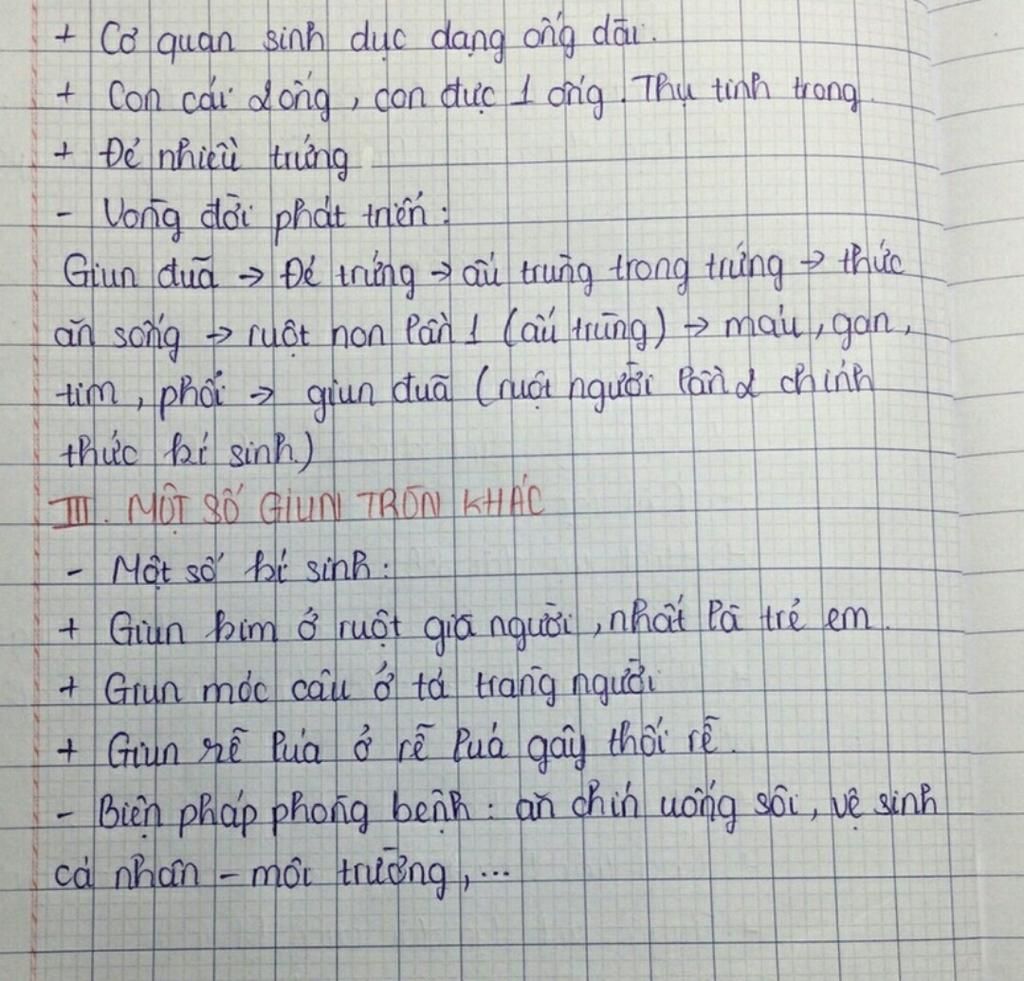 + Cơ quan sinh dục dạng ống dài.
+ Con cái 2 ống, con đực 1 ống. Thụ tinh trong.
+ Đẻ nhiều trứng
- Vòng đời phát triển:
Giun đũa → Đẻ trứng → ấu trùng trong trứng → thức
ăn sống → ruột non lần 1 (ấu trùng) → máu, gan,
tim, phổi → giun đũa (ruột người lần 2 chính
thức kí sinh)
III. MỘT SỐ GIUN TRÒN KHÁC
- Một số kí sinh:
+ Giun kim ở ruột già người, nhất là trẻ em.
+ Giun móc câu ở tá tràng người
+ Giun rễ lúa ở rễ lúa gây thối rễ.
- Biện pháp phòng bệnh: ăn chín uống sôi, vệ sinh
cá nhân - môi trường, ...